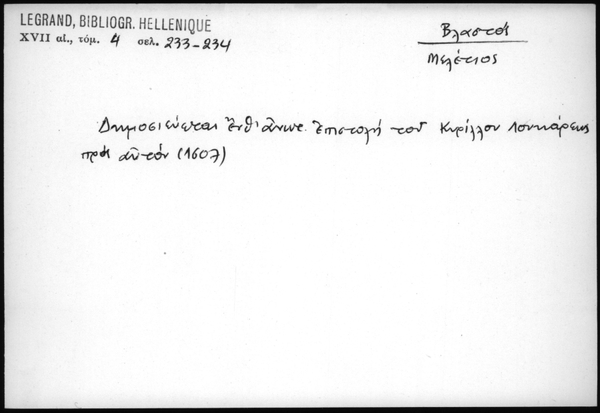 LEGRAND, BIBLIOGR. HELLENIQUE
XVII αἰ., τόμ. 4 σελ. 233-234
Βλαστός
Μελέτιος
Δημοσιεύεται ἔνθ' ἄνωτ. ἐπιστολή τοῦ Κυρίλλου Λουκάρεως
πρός αὐτόν (1607)